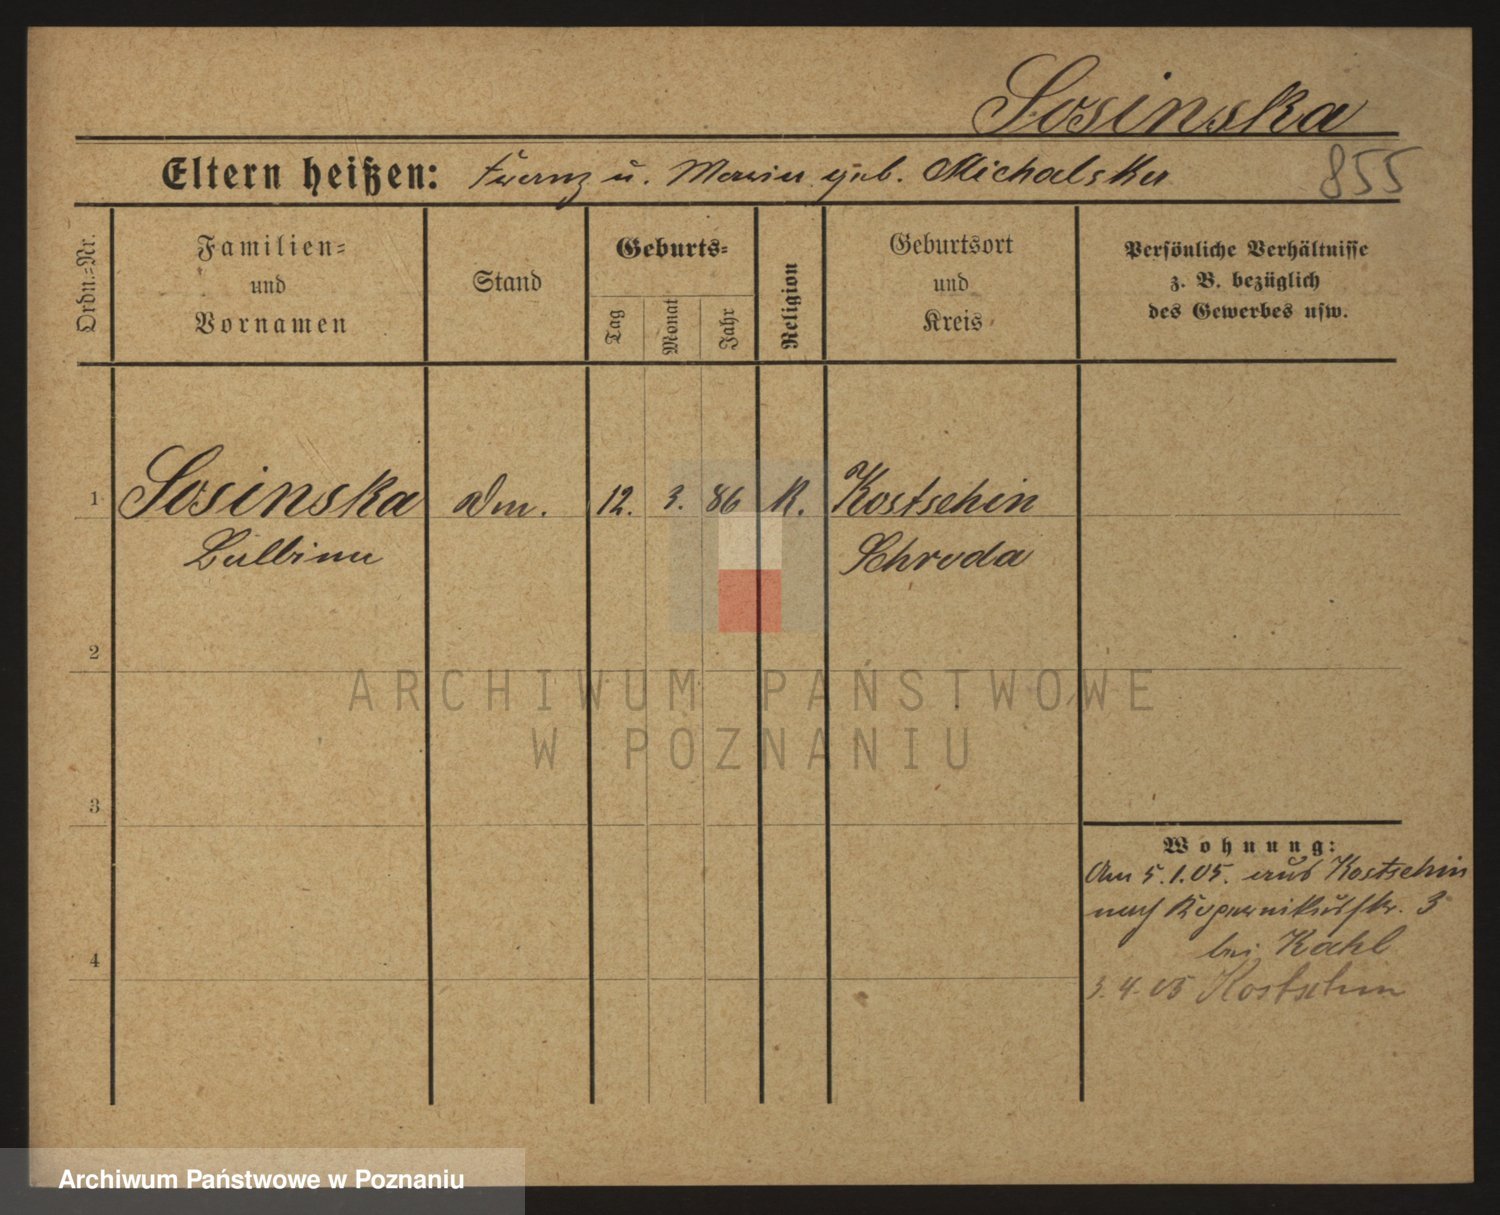 Sosinska
Eltern heißen: Franz u. Maria geb. Michalska
855
Ordn.=Nr.
Familien=
und
Vornamen
Stand
Geburts=
Tag
Monat
Jahr
Religion
Geburtsort
und
Kreis
Persönliche Verhältnisse
z. B. bezüglich
des Gewerbes usw.
1 Sosinska 12. 3. 86 K. Kostschin
Balbina Schroda
2
3
4
Wohnung:
Am 5.1.05. aus Kostschin
nach Kopernikusstr. 3
bei Kahl
3.4.05 Kostschin
ARCHIWUM PAŃSTWOWE
W POZNANIU
Archiwum Państwowe w Poznaniu